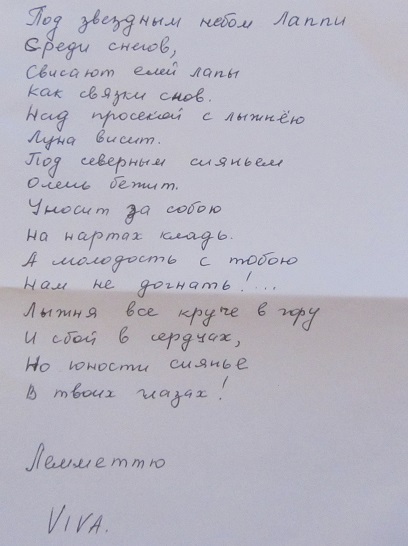 Под звездным небом Лаппи
Среди снегов,
Свисают елей лапы
Как связки снов.
Над просекой с лыжнёю
Луна висит.
Под северным сияньем
Олень бежит.
Уносит за собою
На нартах кладь.
А молодость с тобою
Нам не догнать!...
Лыжня все круче в гору
И сбой в сердцах,
Но юности сиянье
В твоих глазах!
Лемметтю
VIVA.